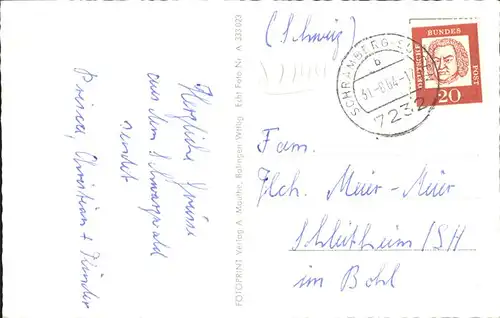 Herzliche Grüsse
aus dem Schwarzwald
sendet
Christian + Kinder
FOTOPRINT Verlag A. Mauthe, Balingen-Württbg Echt Foto Nr. A 333023
(Schweiz)
SCHRAMBERG-SU
b
31.-8.64-1
7232
DEUTSCHE BUNDESPOST
20
Fam.
Jlch. Meier-Meier
Schleitheim/SH
im Bohl